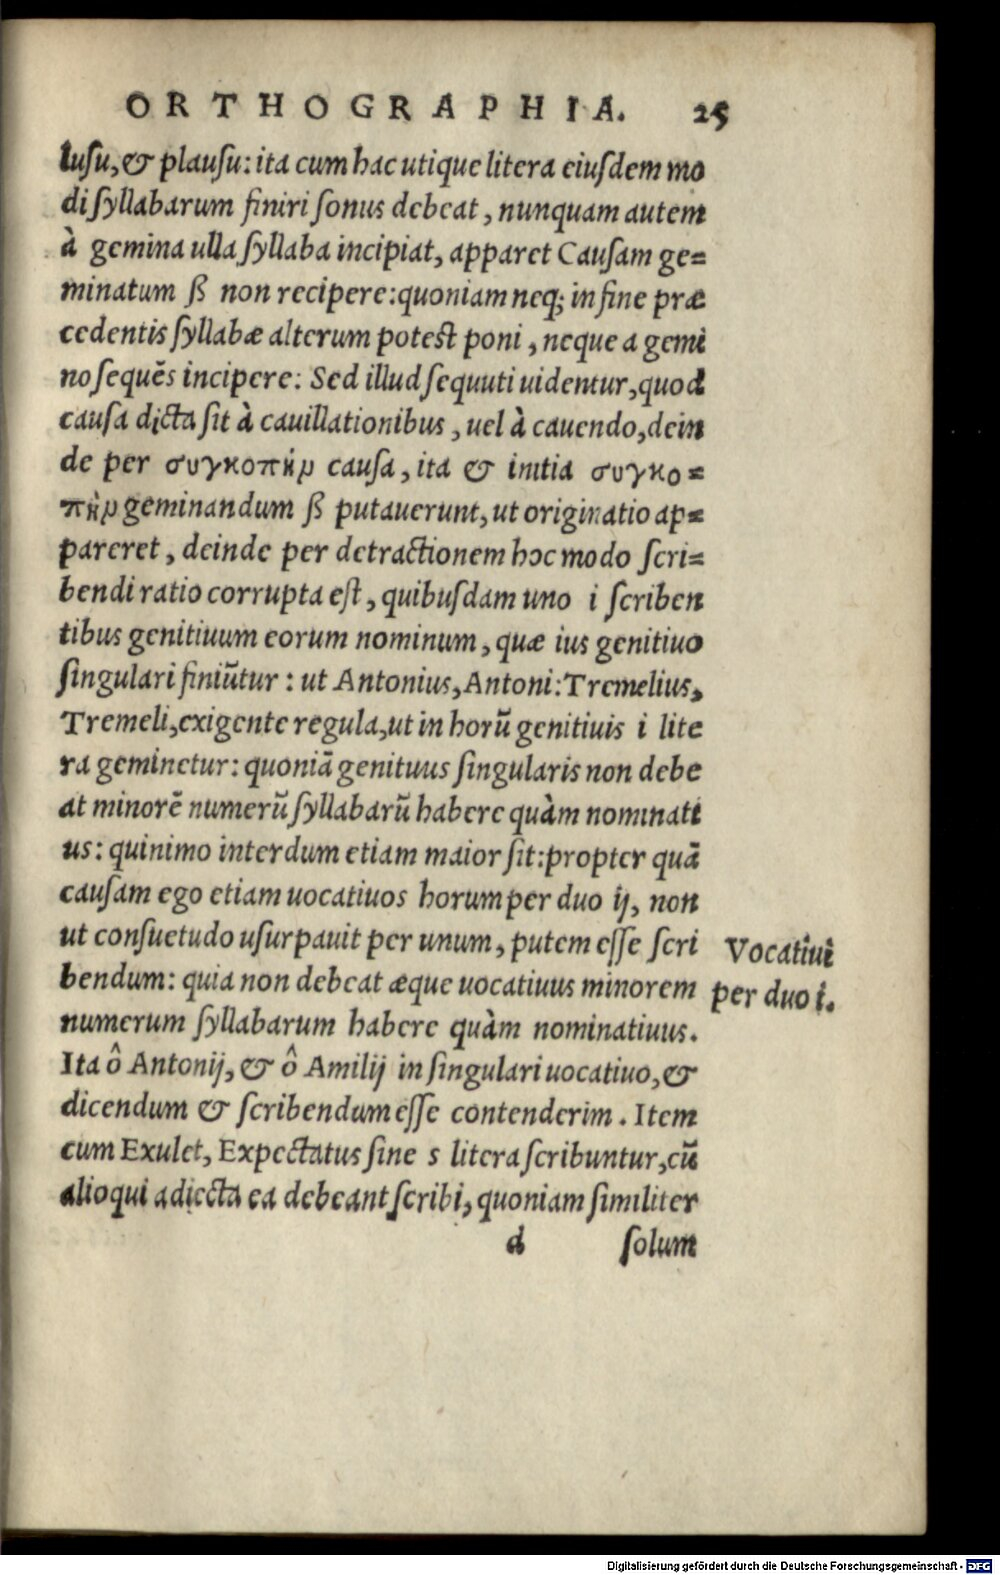 ORTHOGRAPHIA. 25
lusu, & plausu: ita cum hac utique litera eiusdem mo
di syllabarum finiri sonus debeat, nunquam autem
à gemina ulla syllaba incipiat, apparet Causam ge=
minatum ß non recipere: quoniam neq; in fine præ
cedentis syllabæ alterum potest poni, neque a gemi
no sequēs incipere: Sed illud sequuti uidentur, quod
causa dicta sit à cauillationibus, uel à cauendo, dein
de per συγκοπὴρ causa, ita & initia συγκο=
πὴρ geminandum ß putauerunt, ut originatio ap=
pareret, deinde per detractionem hoc modo scri=
bendi ratio corrupta est, quibusdam uno i scriben
tibus genitiuum eorum nominum, quæ ius genitiuo
singulari finiūtur: ut Antonius, Antoni: Tremelius,
Tremeli, exigente regula, ut in horū genitiuis i lite
ra geminetur: quoniā genituus singularis non debe
at minorē numerū syllabarū habere quàm nominati
us: quinimo interdum etiam maior sit: propter quā
causam ego etiam uocatiuos horum per duo ij, non
ut consuetudo usurpauit per unum, putem esse scri
bendum: quia non debeat æque uocatiuus minorem
numerum syllabarum habere quàm nominatiuus.
Ita ô Antonij, & ô Amilij in singulari uocatiuo, &
dicendum & scribendum esse contenderim. Item
cum Exulet, Expectatus sine s litera scribuntur, cū
alioqui adiecta ea debeant scribi, quoniam similiter
d solum
Vocatiui
per duo i.
Digitalisierung gefördert durch die Deutsche Forschungsgemeinschaft - DFG